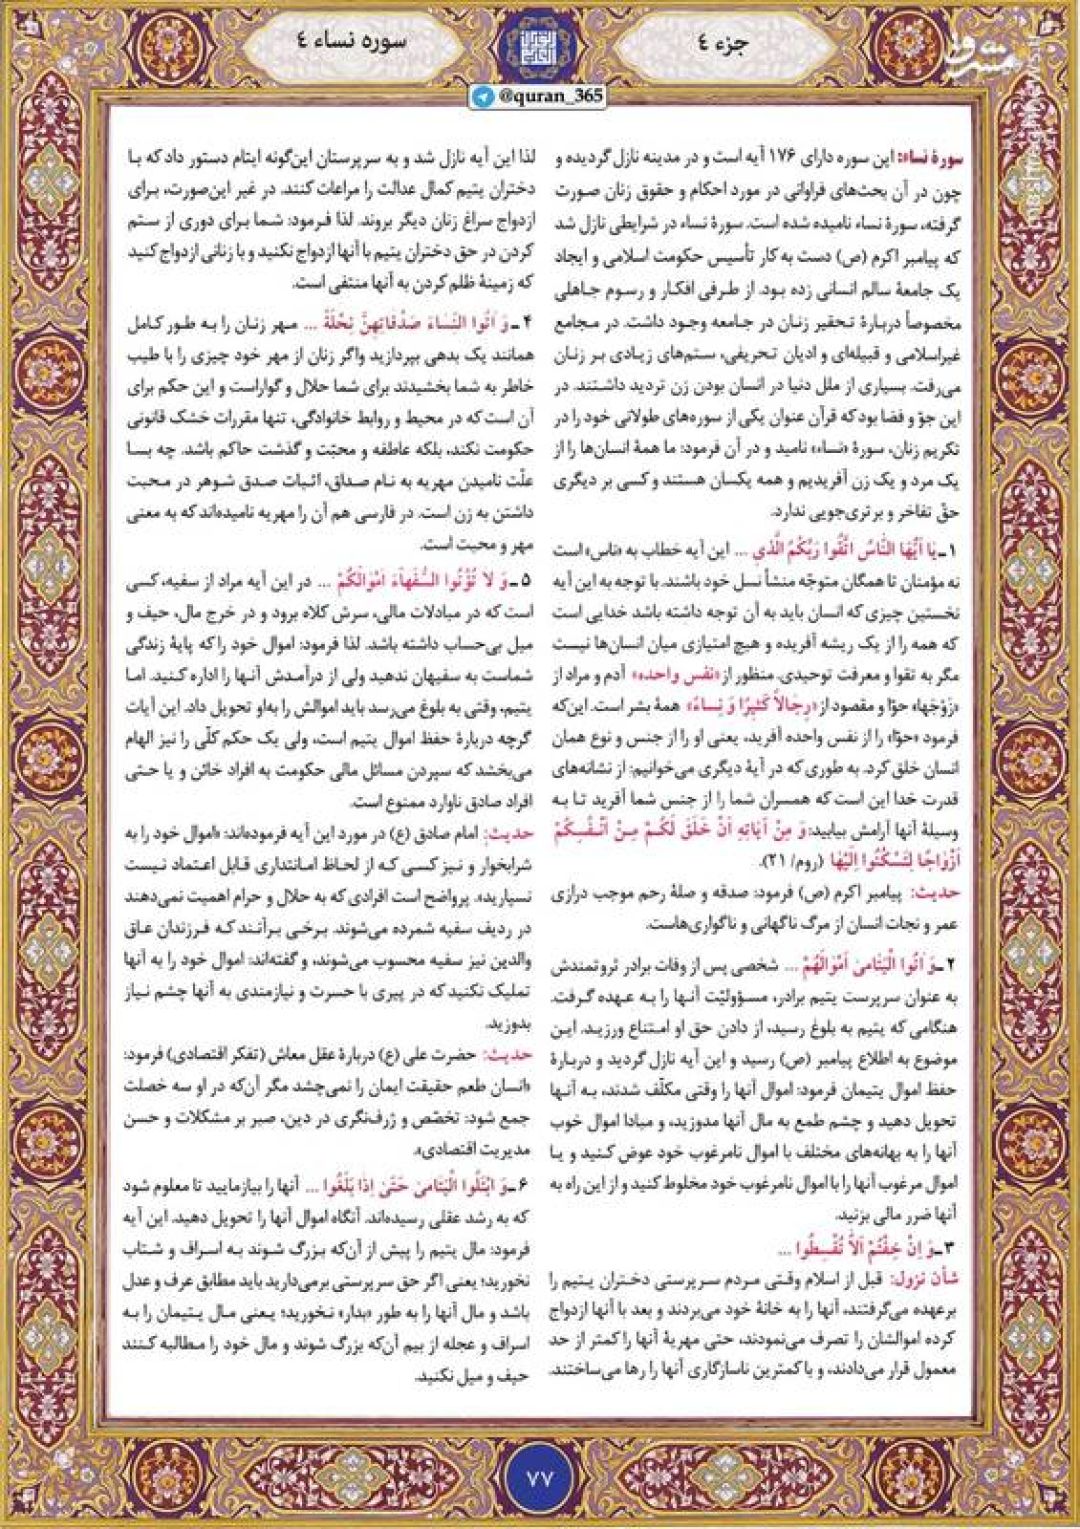 سوره نساء ٤
جزء ٤
مشرق
@quran_365
سورهٔ نساء: این سوره دارای ۱۷۶ آیه است و در مدینه نازل گردیده و
چون در آن بحث‌های فراوانی در مورد احکام و حقوق زنان صورت
گرفته، سورهٔ نساء نامیده شده است. سورهٔ نساء در شرایطی نازل شد
که پیامبر اکرم (ص) دست به کار تأسیس حکومت اسلامی و ایجاد
یک جامعهٔ سالم انسانی زده بود. از طرفی افکار و رسوم جاهلی
مخصوصاً دربارهٔ تحقیر زنان در جامعه وجود داشت. در مجامع
غیراسلامی و قبیله‌ای و ادیان تحریفی، ستم‌های زیادی بر زنان
می‌رفت. بسیاری از ملل دنیا در انسان بودن زن تردید داشتند. در
این جوّ و فضا بود که قرآن عنوان یکی از سوره‌های طولانی خود را در
تکریم زنان، سورهٔ «نساء» نامید و در آن فرمود: ما همهٔ انسان‌ها را از
یک مرد و یک زن آفریدیم و همه یکسان هستند و کسی بر دیگری
حقّ تفاخر و برتری‌جویی ندارد.
۱ـ یَا أَیُّهَا النَّاسُ اتَّقُوا رَبَّکُمُ الَّذِی ... این آیه خطاب به «ناس» است
نه مؤمنان تا همگان متوجّه منشأ نسل خود باشند. با توجه به این آیه
نخستین چیزی که انسان باید به آن توجه داشته باشد خدایی است
که همه را از یک ریشه آفریده و هیچ امتیازی میان انسان‌ها نیست
مگر به تقوا و معرفت توحیدی. منظور از «نفس واحده» آدم و مراد از
«زَوْجَها» حوّا و مقصود از «رِجَالاً کَثِیرًا وَ نِساءً» همهٔ بشر است. این‌که
فرمود «حوّا» را از نفس واحده آفرید، یعنی او را از جنس و نوع همان
انسان خلق کرد. به طوری که در آیهٔ دیگری می‌خوانیم: از نشانه‌های
قدرت خدا این است که همسران شما را از جنس شما آفرید تا به
وسیلهٔ آنها آرامش بیابید: وَ مِنْ آیَاتِهِ أَنْ خَلَقَ لَکُمْ مِنْ أَنْفُسِکُمْ
أَزْوَاجًا لِتَسْکُنُوا إِلَیْهَا (روم/ ۲۱).
حدیث: پیامبر اکرم (ص) فرمود: صدقه و صلهٔ رحم موجب درازی
عمر و نجات انسان از مرگ ناگهانی و ناگواری‌هاست.
۲ـ وَ آتُوا الْیَتَامَىٰ أَمْوَالَهُمْ ... شخصی پس از وفات برادر ثروتمندش
به عنوان سرپرست یتیم برادر، مسؤولیّت آنها را به عهده گرفت.
هنگامی که یتیم به بلوغ رسید، از دادن حق او امتناع ورزید. این
موضوع به اطلاع پیامبر (ص) رسید و این آیه نازل گردید و دربارهٔ
حفظ اموال یتیمان فرمود: اموال آنها را وقتی مکلّف شدند، به آنها
تحویل دهید و چشم طمع به مال آنها مدوزید، و مبادا اموال خوب
آنها را به بهانه‌های مختلف با اموال نامرغوب خود عوض کنید و یا
اموال مرغوب آنها را با اموال نامرغوب خود مخلوط کنید و از این راه به
آنها ضرر مالی بزنید.
۳ـ وَ إِنْ خِفْتُمْ أَلَّا تُقْسِطُوا ...
شأن نزول: قبل از اسلام وقتی مردم سرپرستی دختران یتیم را
برعهده می‌گرفتند، آنها را به خانهٔ خود می‌بردند و بعد با آنها ازدواج
کرده اموالشان را تصرف می‌نمودند، حتی مهریهٔ آنها را کمتر از حد
معمول قرار می‌دادند، و با کمترین ناسازگاری آنها را رها می‌ساختند.
لذا این آیه نازل شد و به سرپرستان این‌گونه ایتام دستور داد که با
دختران یتیم کمال عدالت را مراعات کنند. در غیر این‌صورت، برای
ازدواج سراغ زنان دیگر بروند. لذا فرمود: شما برای دوری از ستم
کردن در حق دختران یتیم با آنها ازدواج نکنید و با زنانی ازدواج کنید
که زمینهٔ ظلم کردن به آنها منتفی است.
۴ـ وَ آتُوا النِّسَاءَ صَدُقَاتِهِنَّ نِحْلَةً ... مهر زنان را به طور کامل
همانند یک بدهی بپردازید واگر زنان از مهر خود چیزی را با طیب
خاطر به شما بخشیدند برای شما حلال و گواراست و این حکم برای
آن است که در محیط و روابط خانوادگی، تنها مقررات خشک قانونی
حکومت نکند، بلکه عاطفه و محبّت و گذشت حاکم باشد. چه بسا
علّت نامیدن مهریه به نام صداق، اثبات صدق شوهر در محبت
داشتن به زن است. در فارسی هم آن را مهریه نامیده‌اند که به معنی
مهر و محبت است.
۵ـ وَ لَا تُؤْتُوا السُّفَهَاءَ أَمْوَالَکُمْ ... در این آیه مراد از سفیه، کسی
است که در مبادلات مالی، سرش کلاه برود و در خرج مال، حیف و
میل بی‌حساب داشته باشد. لذا فرمود: اموال خود را که پایهٔ زندگی
شماست به سفیهان ندهید ولی از درآمدش آنها را اداره کنید. اما
یتیم، وقتی به بلوغ می‌رسد باید اموالش را به‌او تحویل داد. این آیات
گرچه دربارهٔ حفظ اموال یتیم است، ولی یک حکم کلّی را نیز الهام
می‌بخشد که سپردن مسائل مالی حکومت به افراد خائن و یا حتی
افراد صادق ناوارد ممنوع است.
حدیث: امام صادق (ع) در مورد این آیه فرموده‌اند: «اموال خود را به
شرابخوار و نیز کسی که از لحاظ امانتداری قابل اعتماد نیست
نسپارید». پرواضح است افرادی که به حلال و حرام اهمیت نمی‌دهند
در ردیف سفیه شمرده می‌شوند. برخی برآنند که فرزندان عاق
والدین نیز سفیه محسوب می‌شوند، و گفته‌اند: اموال خود را به آنها
تملیک نکنید که در پیری با حسرت و نیازمندی به آنها چشم نیاز
بدوزید.
حدیث: حضرت علی (ع) دربارهٔ عقل معاش (تفکر اقتصادی) فرمود:
«انسان طعم حقیقت ایمان را نمی‌چشد مگر آن‌که در او سه خصلت
جمع شود: تخصّص و ژرف‌نگری در دین، صبر بر مشکلات و حسن
مدیریت اقتصادی».
۶ـ وَ ابْتَلُوا الْیَتَامَىٰ حَتَّىٰ إِذَا بَلَغُوا ... آنها را بیازمایید تا معلوم شود
که به رشد عقلی رسیده‌اند. آنگاه اموال آنها را تحویل دهید. این آیه
فرمود: مال یتیم را پیش از آن‌که بزرگ شوند به اسراف و شتاب
نخورید؛ یعنی اگر حق سرپرستی برمی‌دارید باید مطابق عرف و عدل
باشد و مال آنها را به طور «بدار» نخورید؛ یعنی مال یتیمان را به
اسراف و عجله از بیم آن‌که بزرگ شوند و مال خود را مطالبه کنند
حیف و میل نکنید.
۷۷